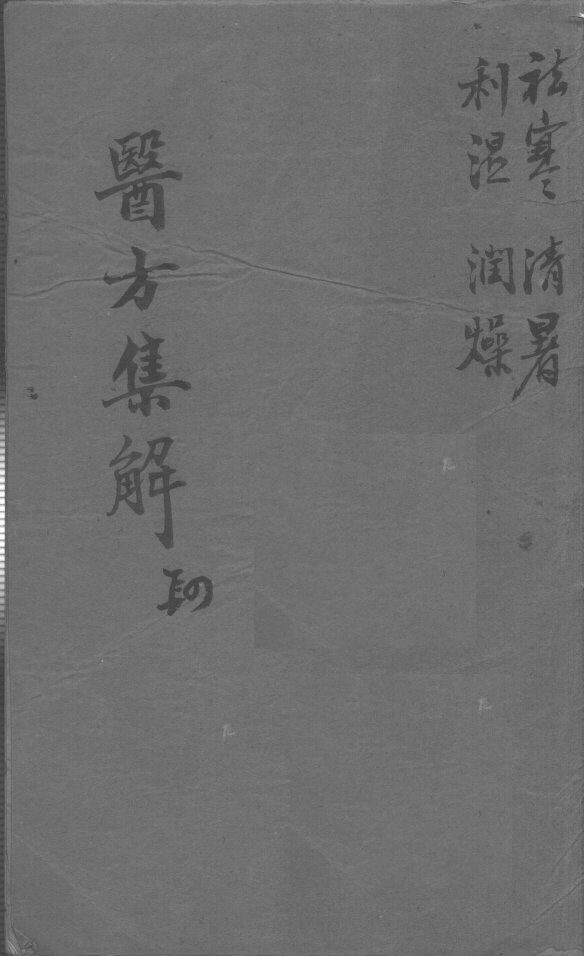 祛寒 清暑
利湿 潤燥
醫方集解